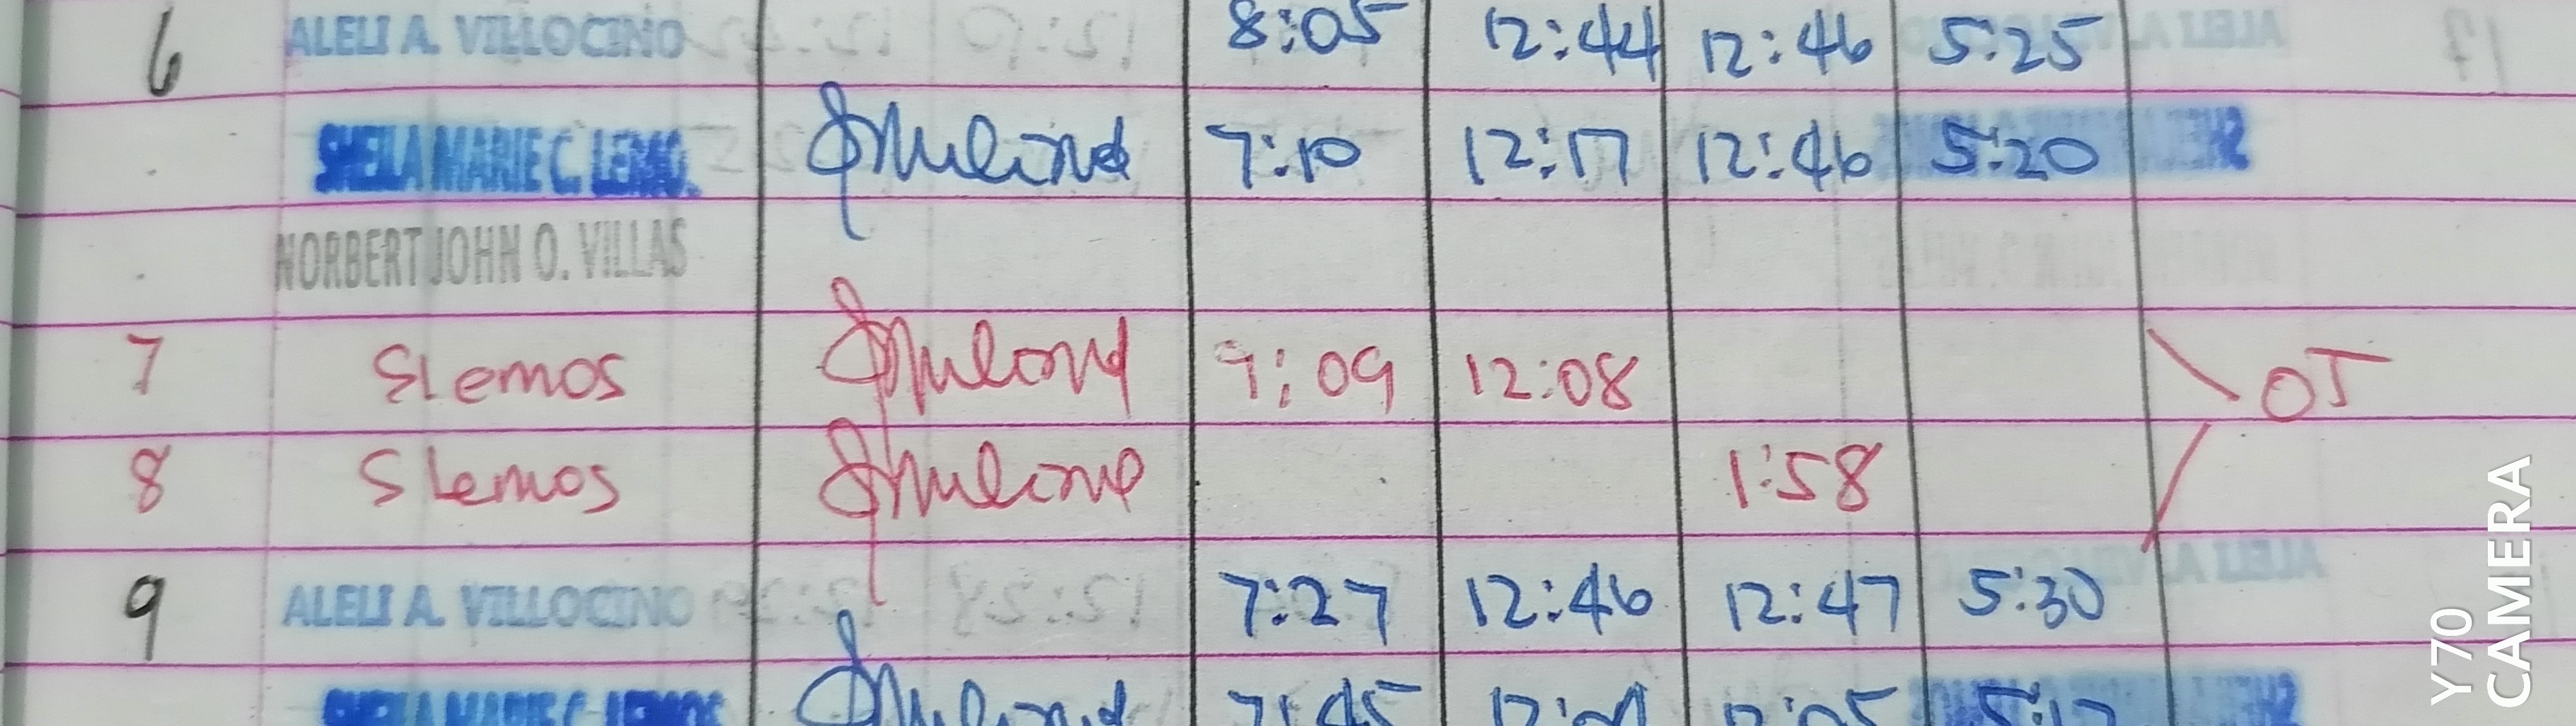 6 ALELI A. VILLOCINO 8:05 12:44 12:46 5:25
SHEILA MARIE C. LEMOS 7:10 12:17 12:46 5:20
NORBERT JOHN O. VILLAS
7 Slemos 9:09 12:08 OT
8 Slemos 1:58
9 ALELI A. VILLOCINO 7:27 12:46 12:47 5:30
SHEILA MARIE C. LEMOS 7:45
Y70
CAMERA